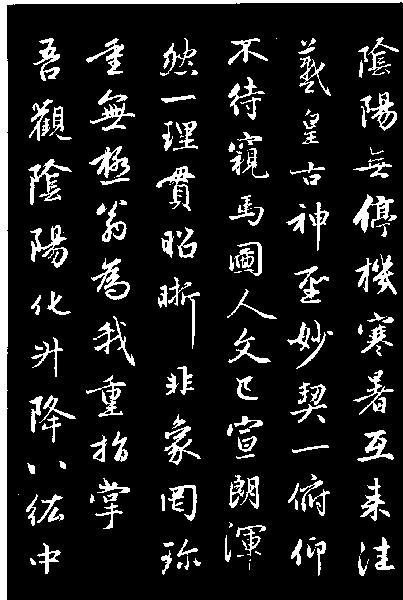 陰陽無停機寒暑互来往
羲皇古神聖妙契一俯仰
不待窺馬圖人文已宣朗渾
然一理貫昭晰非象罔珍
重無極翁為我重指掌
吾觀陰陽化升降八紘中